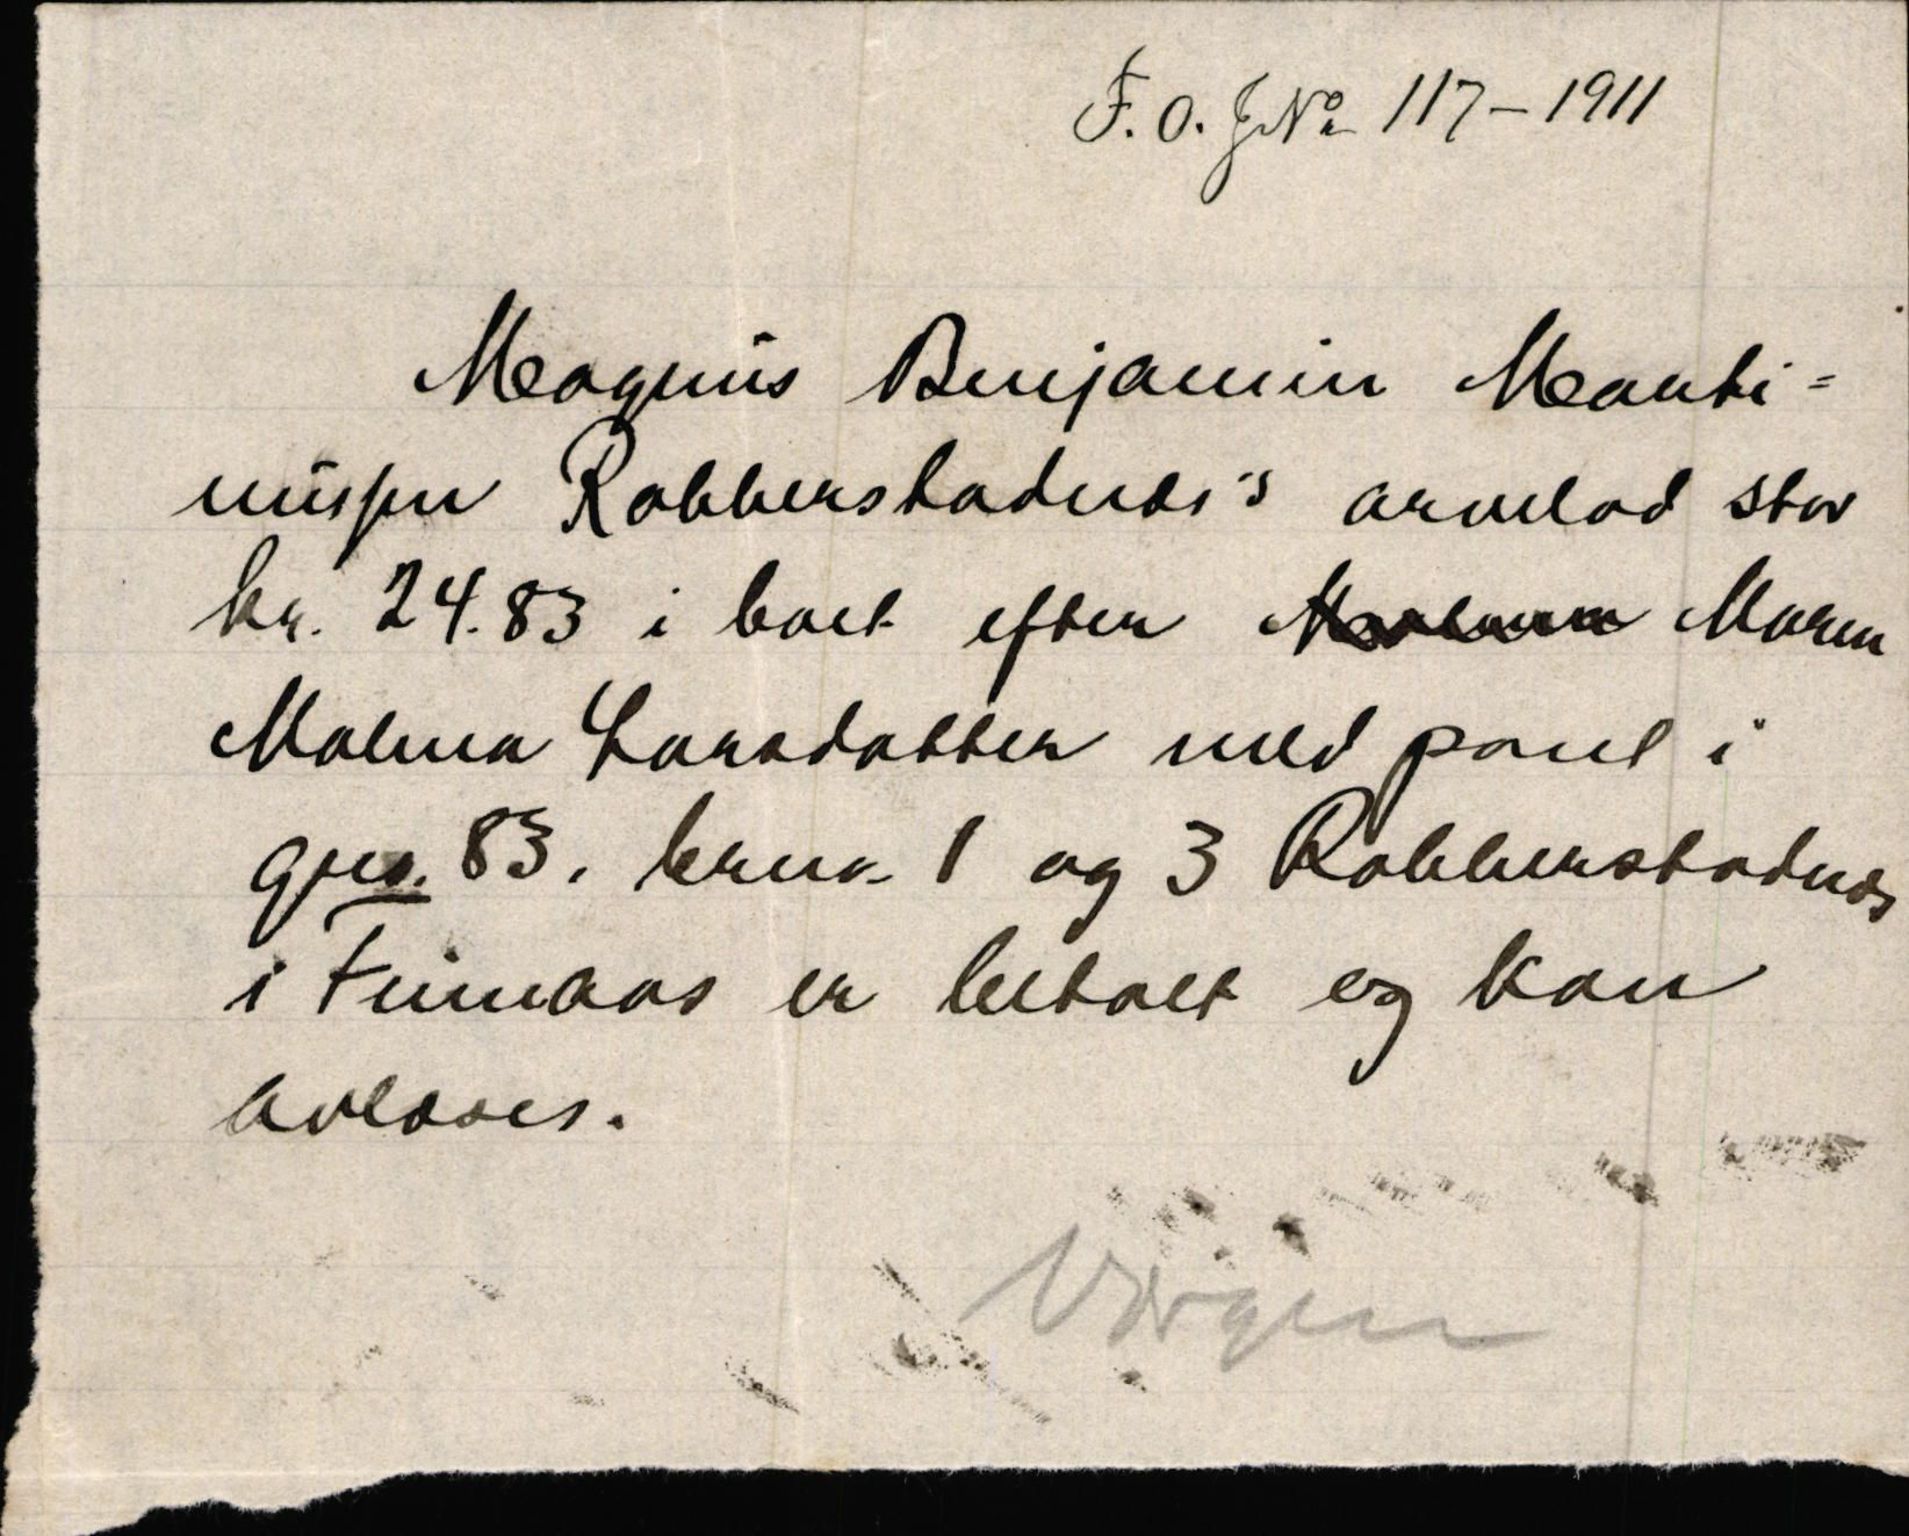 F. O. J№ 117-1911
Magnus Benjamin Marti=
nussen Rabberstadnes's arvelod stor
kr. 24.83 i boet efter Maren
Malena Larsdatter med pant i
gno. 83. brno. 1 og 3 Rabberstadnes
i Finnaas er betalt og kan
avlæses.
Værgen